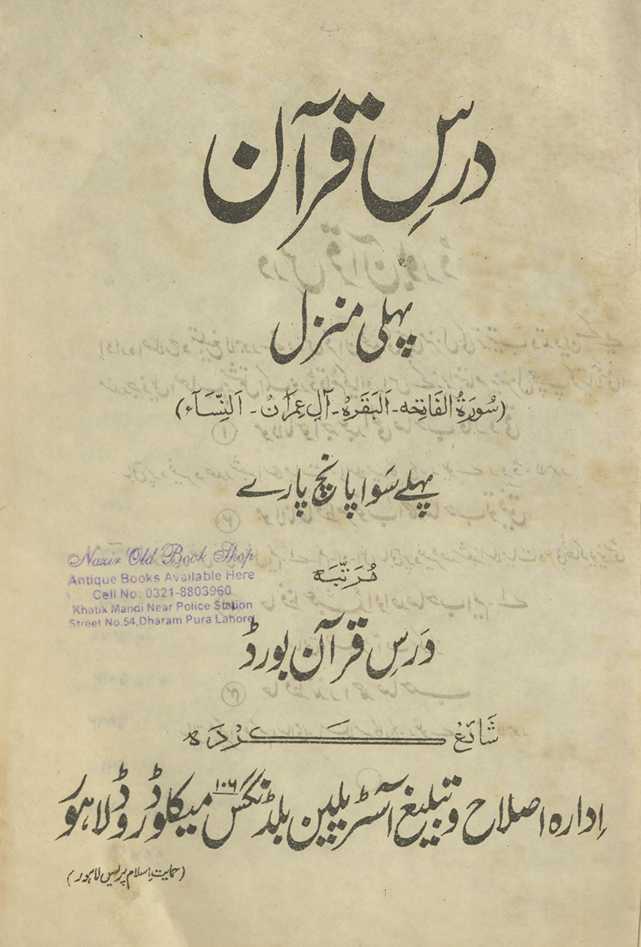 درسِ قرآن
پہلی منزل
(سُورۃُ الفَاتحہ۔ اَلبَقَرہ۔ آلِ عِمرَانؔ۔ اَلنِّسَآء)
پہلے سَوا پانچ پارے
Nazir Old Book Shop
Antique Books Available Here
Cell No: 0321-8803960
Khatik Mandi Near Police Station
Street No.54,Dharam Pura Lahore
مُرَتّبَہ
دَرسِ قرآن بورڈ
شائع کردہ
اِدارہ اصلاح و تبلیغ آسٹریلیین بلڈنگس ۱۰۶ میکلوڈ روڈ لاہور
(حمایتِ اسلام پریس لاہور)